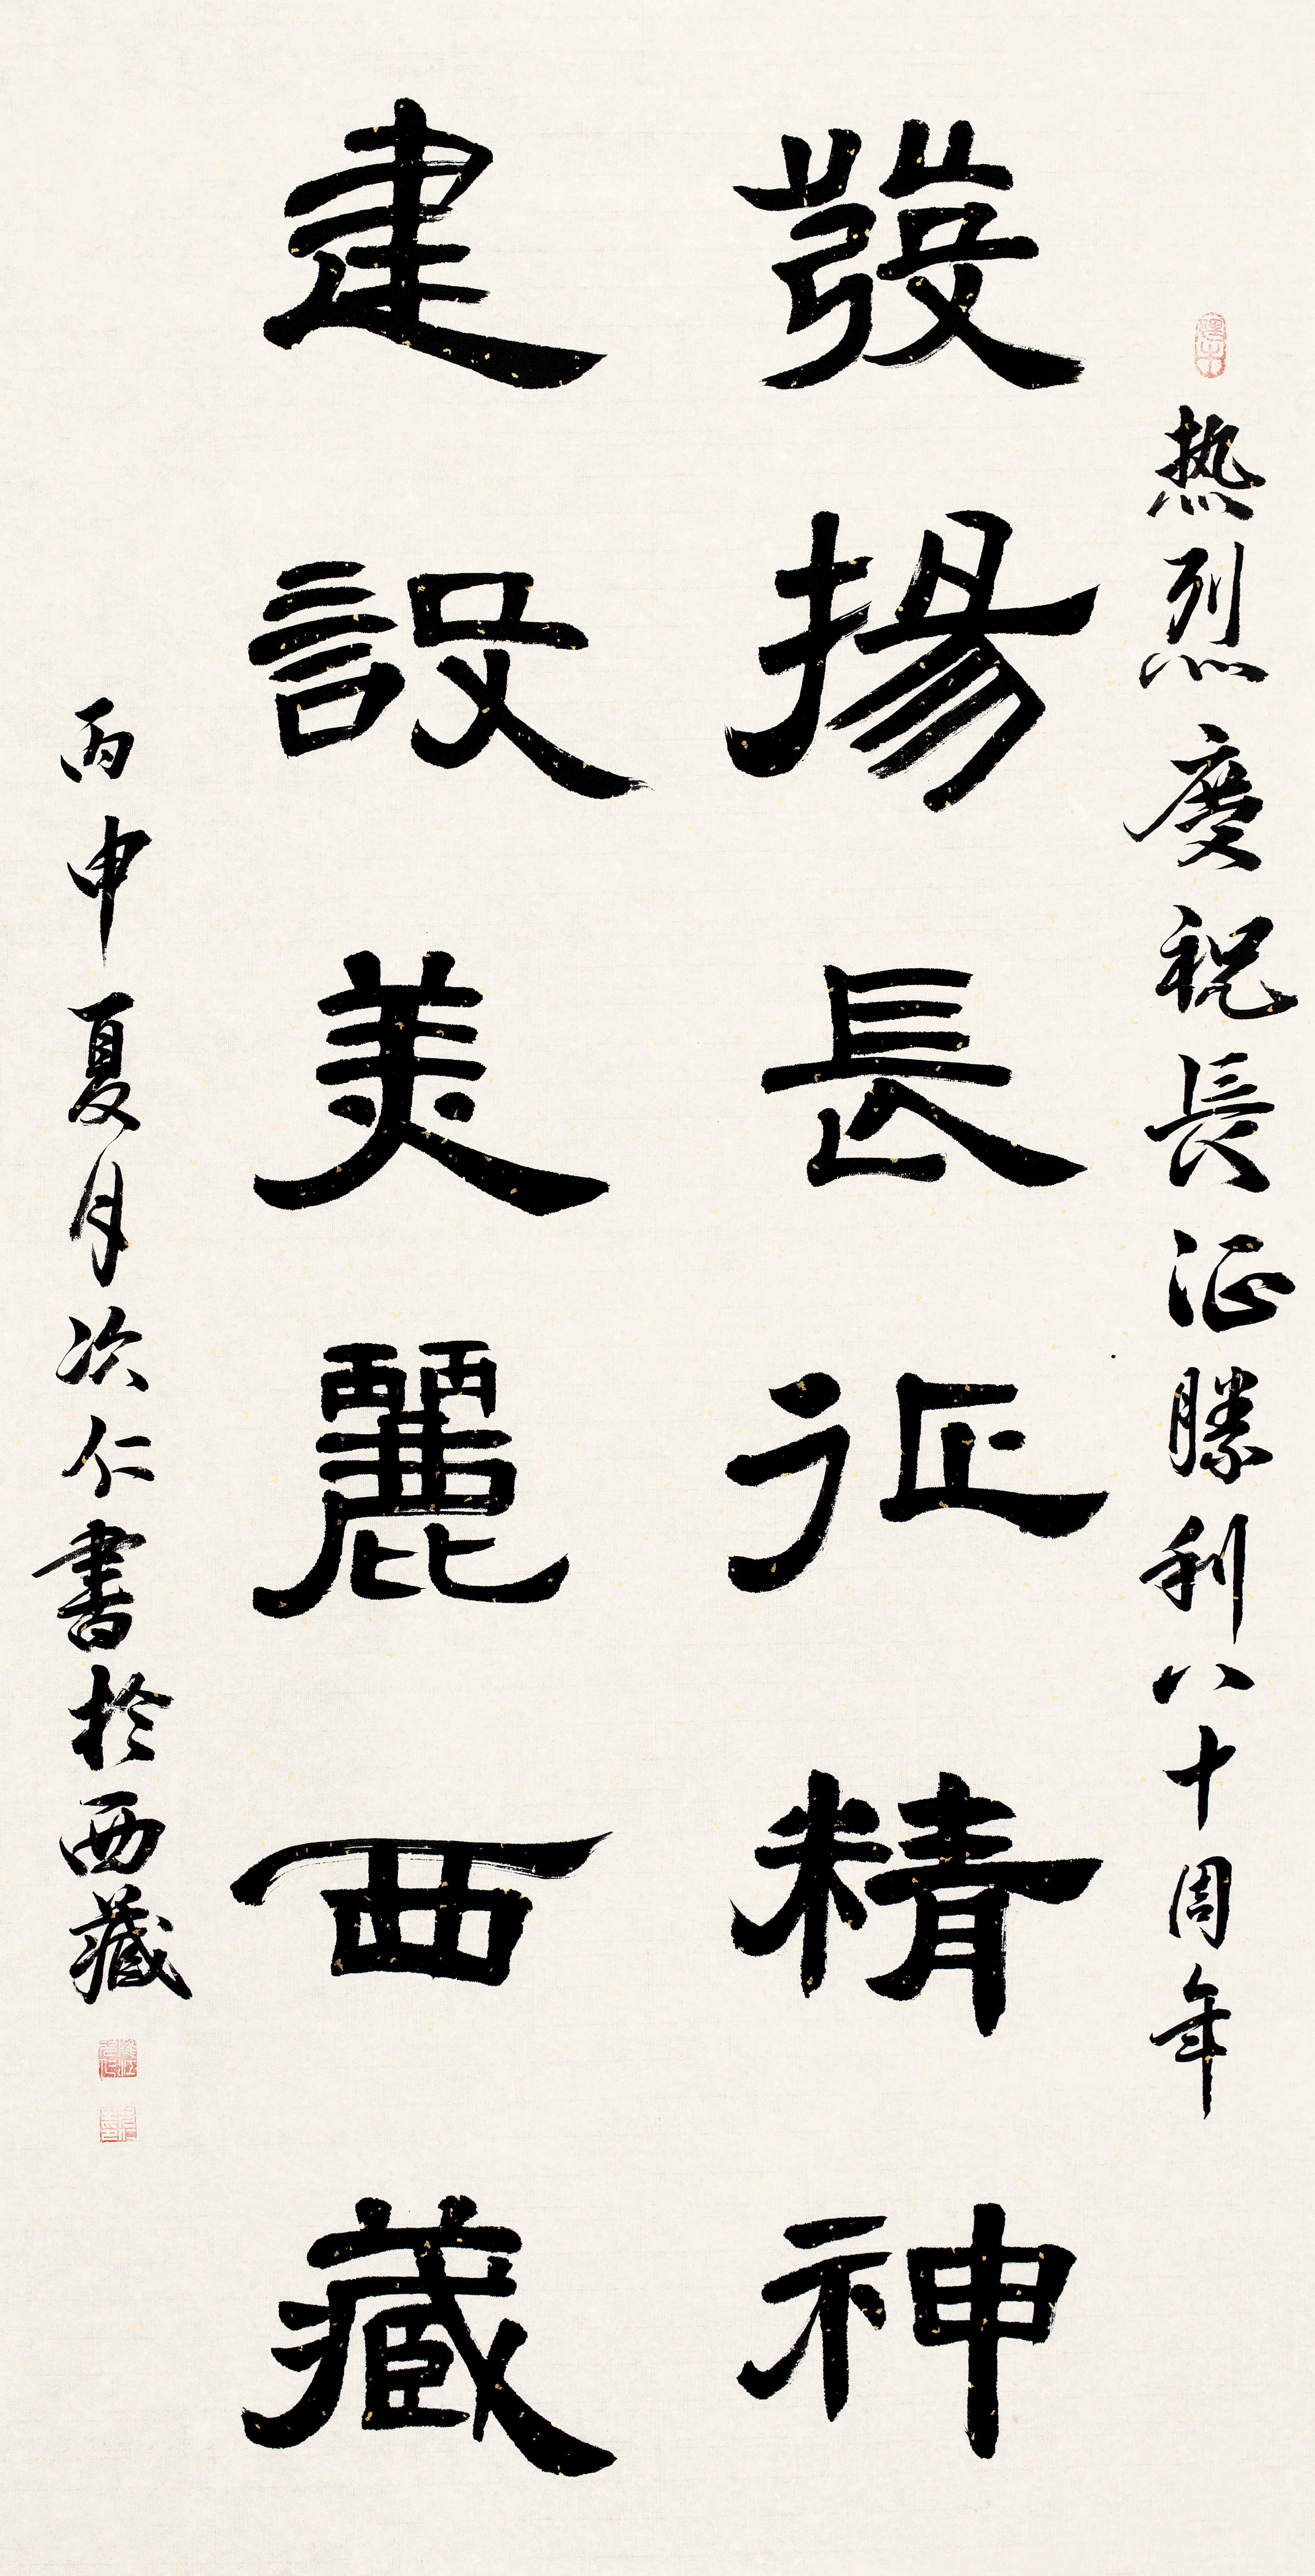 热烈慶祝長征勝利八十周年
發揚長征精神
建設美麗西藏
丙申夏月次仁書於西藏